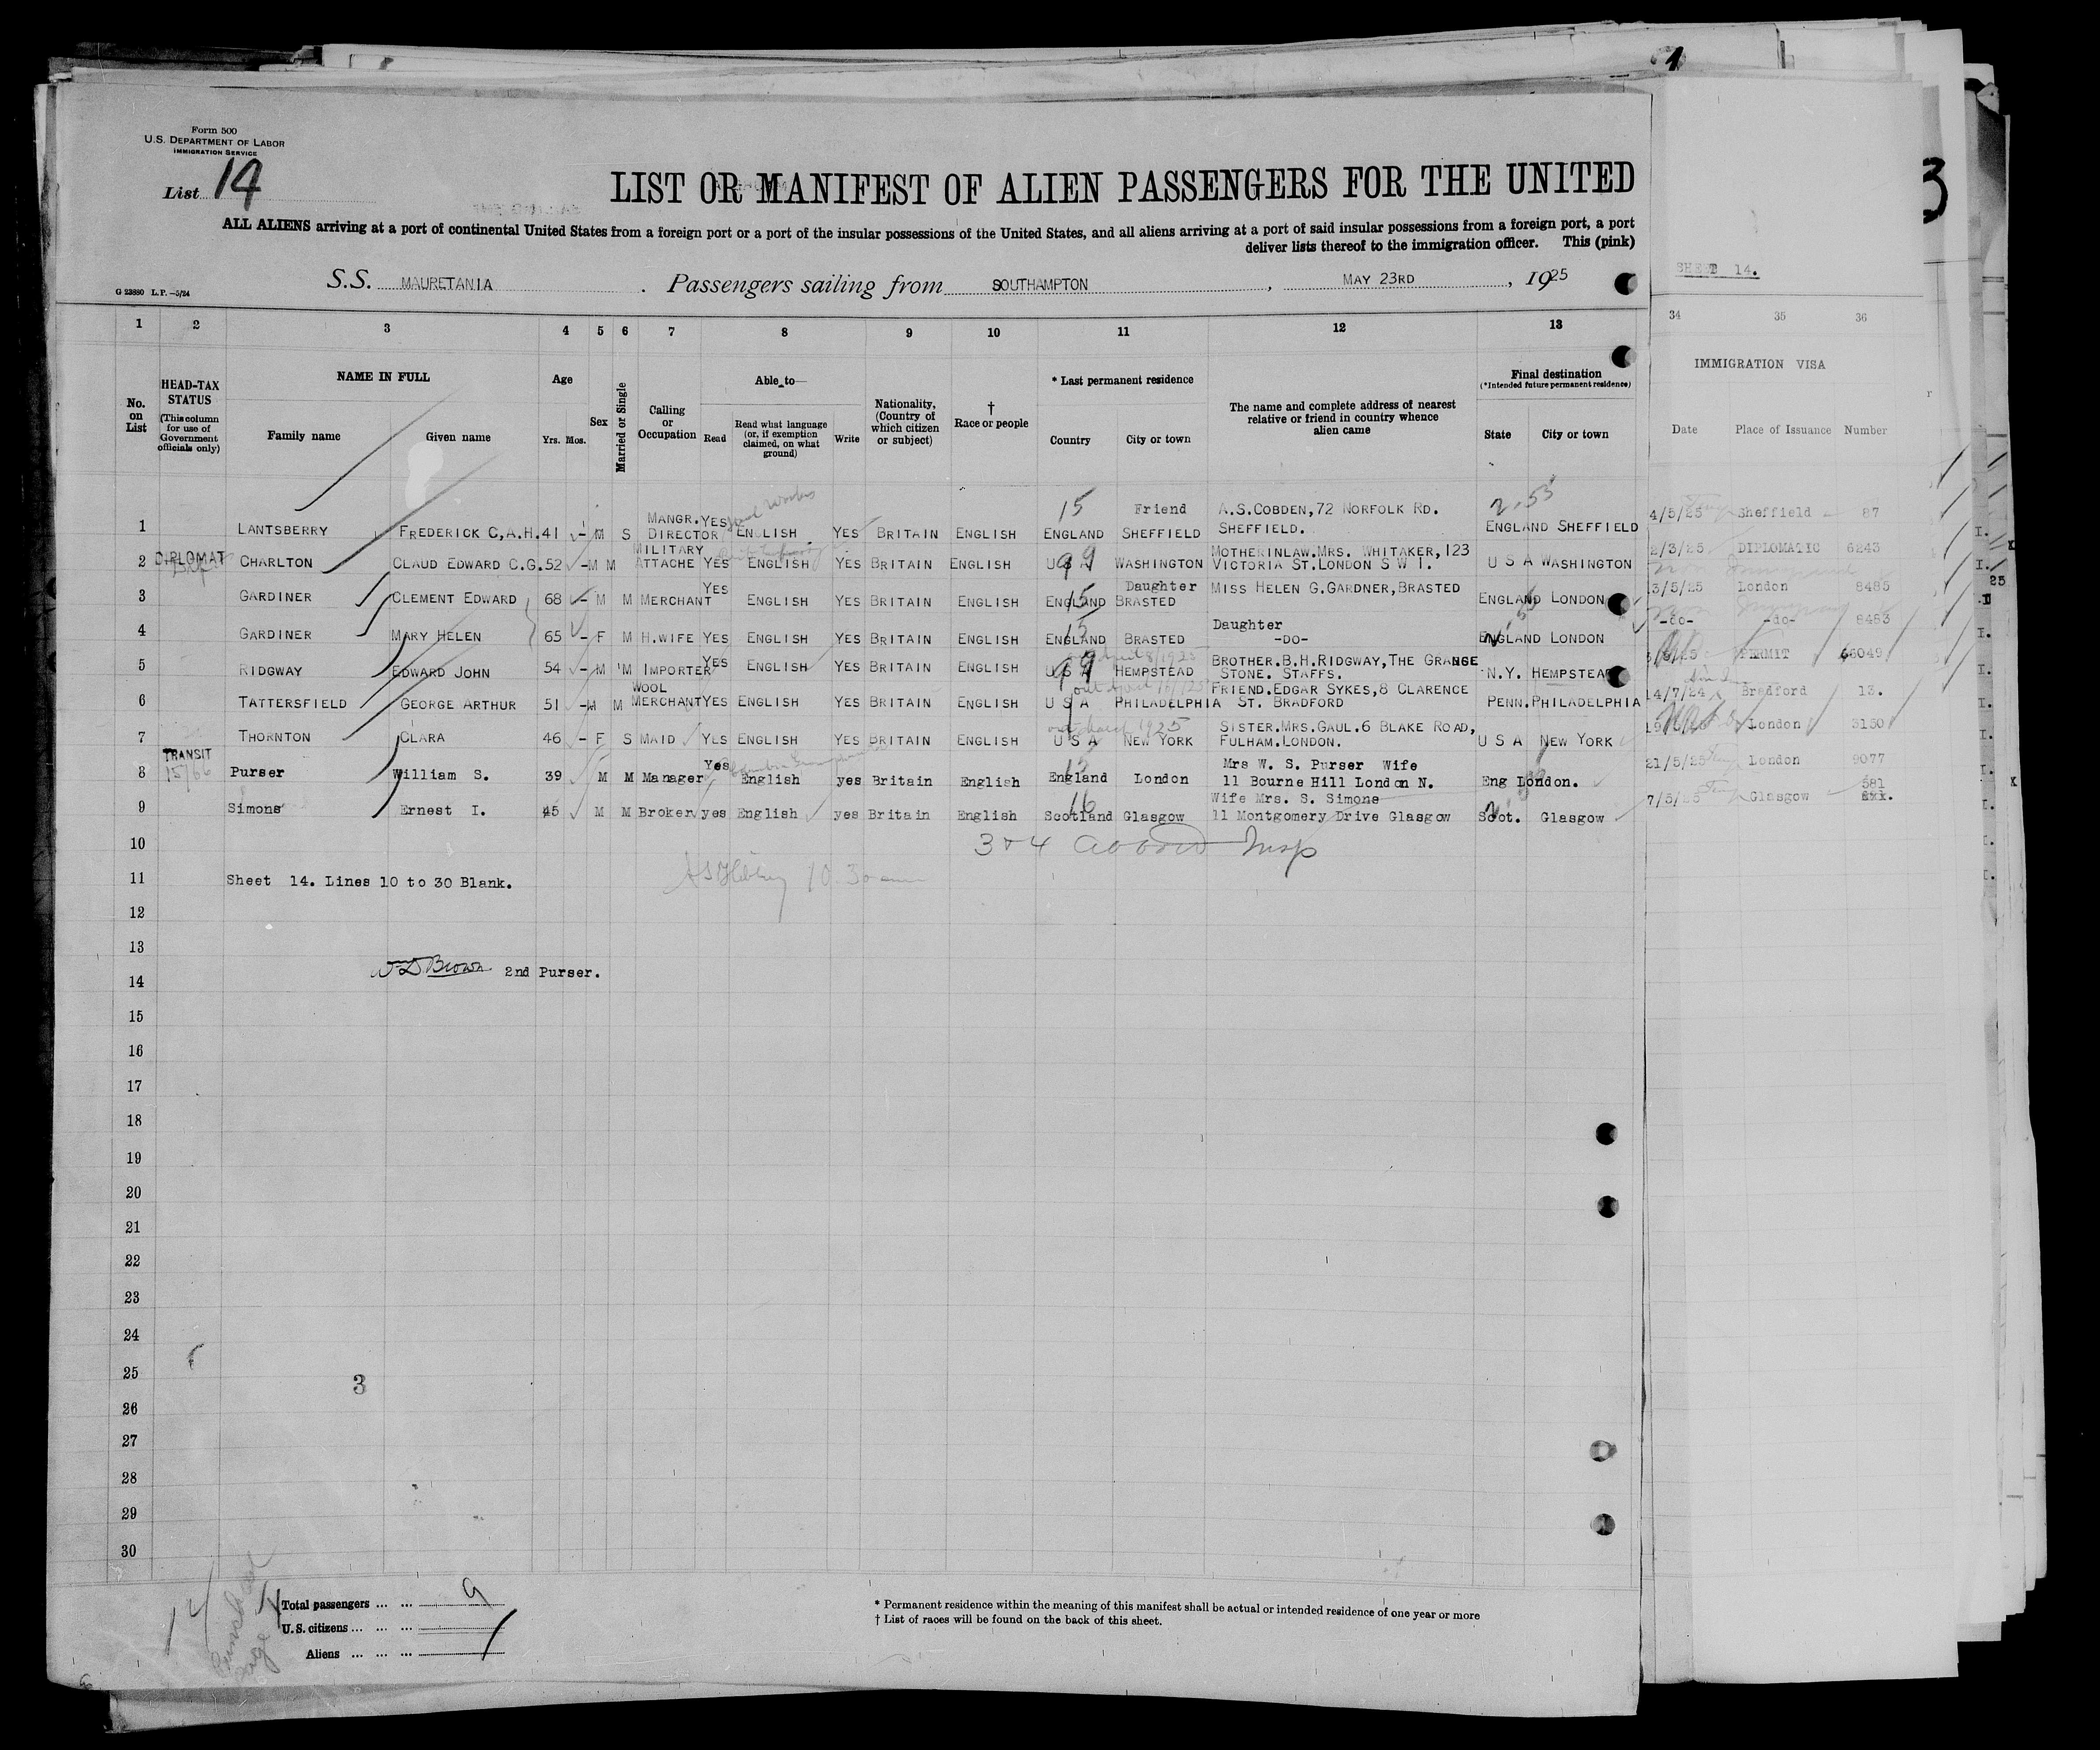 Form 500
U.S. DEPARTMENT OF LABOR
IMMIGRATION SERVICE
List 14
LIST OR MANIFEST OF ALIEN PASSENGERS FOR THE UNITED
ALL ALIENS arriving at a port of continental United States from a foreign port or a port of the insular possessions of the United States, and all aliens arriving at a port of said insular possessions from a foreign port, a port
deliver lists thereof to the immigration officer. This (pink)
G 23880 L.P.—5/24
S.S. MAURETANIA. Passengers sailing from SOUTHAMPTON, MAY 23RD, 1925
SHEET 14.
1 2 3 4 5 6 7 8 9 10 11 12 13 34 35 36
No. on List
HEAD-TAX STATUS (This column for use of Government officials only)
NAME IN FULL
Family name Given name
Age
Yrs. Mos.
Sex
Married or Single
Calling or Occupation
Able to—
Read
Read what language (or, if exemption claimed, on what ground)
Write
Nationality, (Country of which citizen or subject)
† Race or people
* Last permanent residence
Country City or town
The name and complete address of nearest relative or friend in country whence alien came
Final destination
(*Intended future permanent residence)
State City or town
IMMIGRATION VISA
Date Place of Issuance Number
1 LANTSBERRY FREDERICK C,A.H. 41 - M S MANGR. DIRECTOR YES ENGLISH YES BRITAIN ENGLISH ENGLAND SHEFFIELD Friend A.S.COBDEN,72 NORFOLK RD. SHEFFIELD. ENGLAND SHEFFIELD 4/5/25 Sheffield 87
2 DIPLOMAT CHARLTON CLAUD EDWARD C.G. 52 - M M MILITARY ATTACHE YES ENGLISH YES BRITAIN ENGLISH U S A WASHINGTON MOTHERINLAW.MRS. WHITAKER,123 VICTORIA ST.LONDON S W I. U S A WASHINGTON 2/3/25 DIPLOMATIC 6243
3 GARDINER CLEMENT EDWARD 68 - M M MERCHANT YES ENGLISH YES BRITAIN ENGLISH ENGLAND BRASTED Daughter MISS HELEN G.GARDNER,BRASTED ENGLAND LONDON 3/5/25 London 8485
4 GARDINER MARY HELEN 65 - F M H.WIFE YES ENGLISH YES BRITAIN ENGLISH ENGLAND BRASTED Daughter -DO- ENGLAND LONDON -do- -do- 8453
5 RIDGWAY EDWARD JOHN 54 - M M IMPORTER YES ENGLISH YES BRITAIN ENGLISH U S A HEMPSTEAD BROTHER.B.H.RIDGWAY,THE GRANGE STONE. STAFFS. N.Y. HEMPSTEAD PERMIT 66049
6 TATTERSFIELD GEORGE ARTHUR 51 - M M WOOL MERCHANT YES ENGLISH YES BRITAIN ENGLISH U S A PHILADELPHIA FRIEND.EDGAR SYKES,8 CLARENCE ST. BRADFORD PENN.PHILADELPHIA 14/7/24 Bradford 13.
7 THORNTON CLARA 46 - F S MAID YES ENGLISH YES BRITAIN ENGLISH U S A NEW YORK SISTER.MRS.GAUL.6 BLAKE ROAD, FULHAM.LONDON. U S A NEW YORK London 3130
8 TRANSIT Purser William S. 39 M M Manager Yes English yes Britain English England London Mrs W. S. Purser Wife 11 Bourne Hill London N. Eng London. 21/5/25 London 9077
9 Simons Ernest I. 45 M M Broker yes English yes Britain English Scotland Glasgow Wife Mrs. S. Simons 11 Montgomery Drive Glasgow Scot. Glasgow 7/5/25 Glasgow 581
10
11 Sheet 14. Lines 10 to 30 Blank.
12
13
W D Brown 2nd Purser.
14
15
16
17
18
19
20
21
22
23
24
25
3
26
27
28
29
30
Total passengers ... ... 9
U.S. citizens ... ... ...
Aliens ... ... ...
* Permanent residence within the meaning of this manifest shall be actual or intended residence of one year or more
† List of races will be found on the back of this sheet.